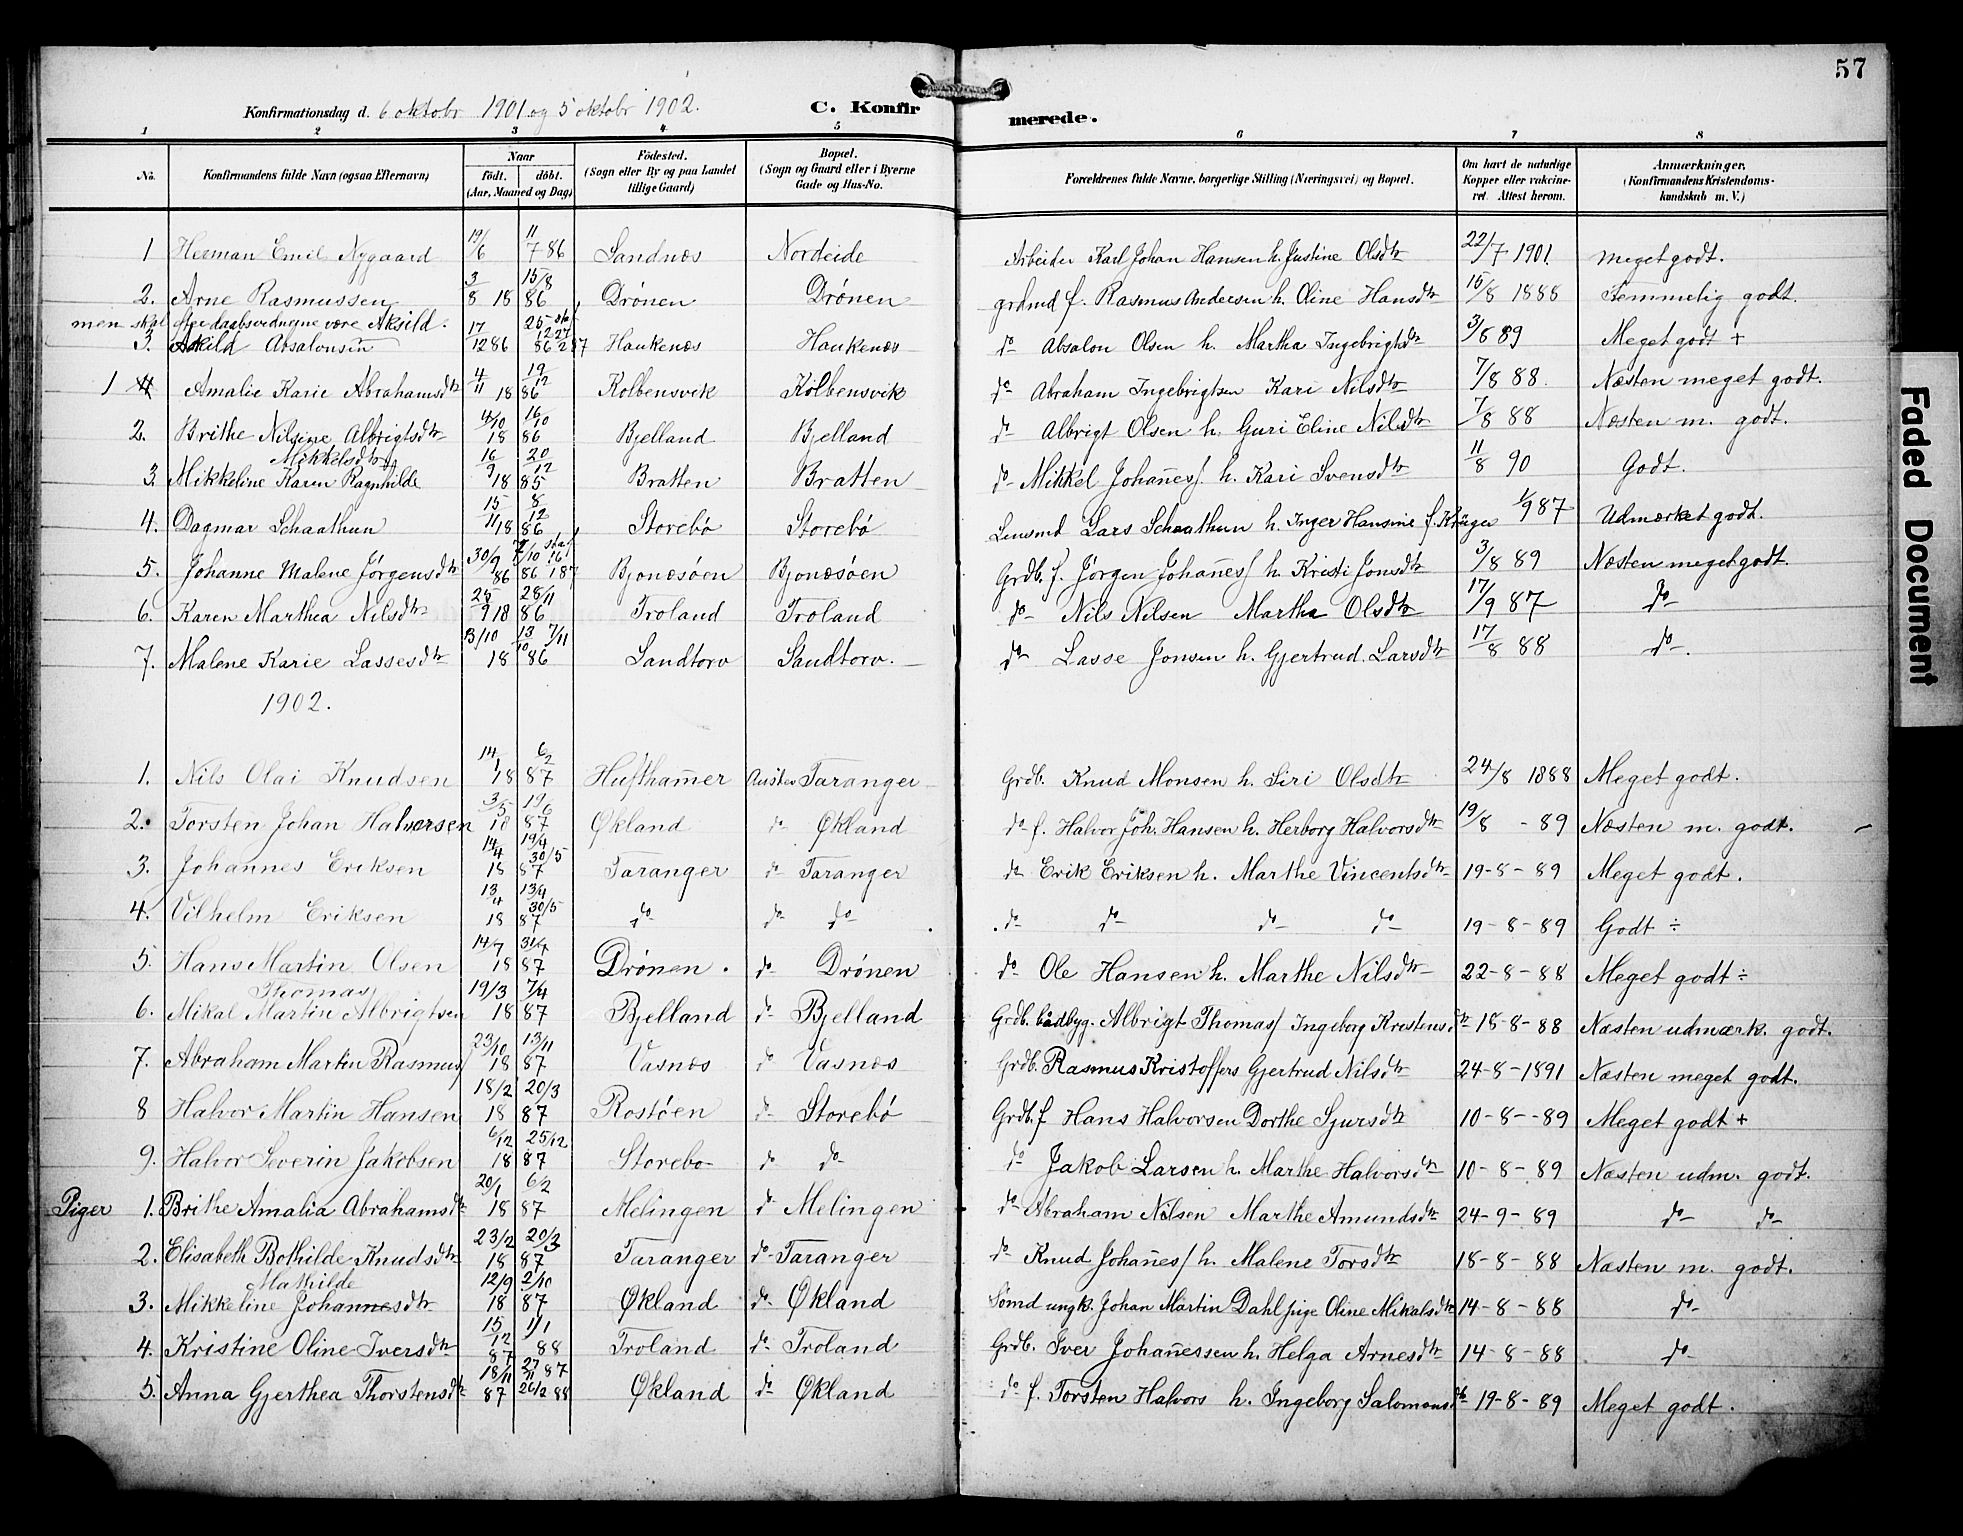 57
Konfirmationsdag d. 6 oktobr 1901 og 5 oktobr 1902. C. Konfirmerede.
1 2 3 4 5 6 7 8
No. Konfirmandens fulde Navn (ogsaa Efternavn) Naar født. døbt. (Aar, Maaned og Dag) Fødested. (Sogn eller By og paa Landet tillige Gaard) Bopæl. (Sogn og Gaard eller i Byerne Gade og Hus-No. Forældrenes fulde Navne, borgerlige Stilling (Næringsvei) og Bopæl. Om havt de naturlige Kopper eller vakcineret. Attest herom. Anmærkninger. (Konfirmandens Kristendomskundskab m. V.)
1 Herman Emil Nygaard 19/6 11/7 86 Sandnæs Nordeide Arbeider Karl Johan Hansen h. Justine Olsdtr 22/7 1901. meget godt.
2. Arne Rasmussen 3/8 18 15/8 86 Drönen Drönen grdmd f. Rasmus Andersen h. Oline Hansdtr 15/8 1888 Temmelig godt.
men skal efter daabsordnegne være Aksild.
3. Askild Absalonsen 17/12 86 Haukenæs Haukenæs do Absalon Olsen h. Martha Ingebrigtsdtr 3/8 89 Meget godt +
1 4 Amalie Karie Abrahamsdtr 4/11 18 19/12 86 Kolbensvik Kolbensvik do Abraham Ingebrigtsen Kari Nilsdtr 7/8 88. Næsten meget godt.
2. Brithe Nilsine Albrigtsdtr 4/10 18 16/10 86 Bjelland Bjelland do Albrigt Olsen h. Guri Eline Nilsdtr 7/8 88 Næsten m. godt.
Mikkelsdtr
3. Mikkeline Karen Ragnhilde 16/9 18 20/12 85 Bratten Bratten do Mikkel Johanes/ h. Kari Svensdtr 11/8 90 Godt.
4. Dagmar Schaathun 15/11 18 8/12 86 Storebö Storebö Lensmd Lars Schaathun h. Inger Hansine f. Krüger 1/9 87 Udmærket godt.
5. Johanne Malene Jörgensdtr 30/9 86 7/10 86 Bjonæsöen Bjonæsöen Grdb. f. Jörgen Johanes/ h. Kristi Jonsdtr 3/8 89 Næsten meget godt.
6. Karen Marthea Nilsdtr 25/9 18 28/11 86 Troland Troland do Nils Nilsen Martha Olsdtr 17/9 87 do
7. Malene Karie Lassesdtr 13/10 18 13/10 7/11 86 Sandtorv Sandtorv. do Lasse Jonsen h. Gjertrud Larsdtr 17/8 88 do.
1902.
1. Nils Olai Knudsen 14/1 18 6/2 87 Hufthamer Austev Taranger Grdb. Knud Monsen h. Siri Olsdtr 24/8 1888 Meget godt.
2. Torsten Johan Halvorsen 3/5 18 19/6 87 Økland do Økland do f. Halvor Joh. Hansen h. Herborg Halvorsdtr 19/8 - 89 Næsten m. godt.
3. Johannes Eriksen 14/4 18 19/4 30/5 87 Taranger do Taranger do Erik Eriksen h. Marthe Vincentsdtr 19-8-89 Meget godt.
4. Vilhelm Eriksen 13/4 18 13/4 30/5 87 do do do do do do do 19-8-89 Godt ÷
5. Hans Martin Olsen 14/7 18 31/7 87 Drönen. do Drönen do Ole Hansen h. Marthe Nilsdtr 22-8-88 Meget godt ÷
Thomas
6. Mikal Martin Albrigtsen 19/3 18 7/4 87 Bjelland do Bjelland Grdb. baadbyg. Albrigt Thomas/ Ingeborg Kristensdtr 18-8-88 Næsten udmærk. godt.
7. Abraham Martin Rasmus/ 23/10 18 13/11 87 Vasnæs do Vasnæs Grdb. Rasmus Kristoffers Gjertrud Nilsdtr 24-8-1891 Næsten meget godt.
8 Halvor Martin Hansen 18/2 18 20/3 87 Rostöen do Storebö Grdb. f Hans Halvorsen Dorthe Sjursdtr 10-8--89 Meget godt +
9. Halvor Severin Jakobsen 6/12 18 25/12 87 Storebo do do do Jakob Larsen h. Marthe Halvorsdtr 10-8-89 Næsten udm. godt.
Piger 1. Brithe Amalia Abrahamsdtr 20/1 18 6/2 87 Melingen do Melingen do Abraham Nilsen Marthe Amundsdtr 24-9-89 do do
2. Elisabeth Bothilde Knudsdtr 23/2 18 20/3 87 Taranger do Taranger do Knud Johanes/ h. Malene Torsdtr 18-8-88 Næsten m. godt.
Mathilde
3. Mikkeline Johannesdtr 12/9 18 2/10 87 Økland do Økland Sömd ungk. Johan Martin Dahl pige Oline Mikalsdtr 14-8-88 do
4. Kristine Oline Iversdtr 15/12 87 1/1 88 Troland do Troland Grdb. Iver Johanessen h. Helga Arnesdtr 14-8-88 do
5. Anna Gjerthea Thorstensdtr 18/11 87 27/11 87 26/2 88 Økland do Økland do f. Torsten Halvors h. Ingeborg Salomonsdtr 19-8-89 Meget godt.
Faded Document